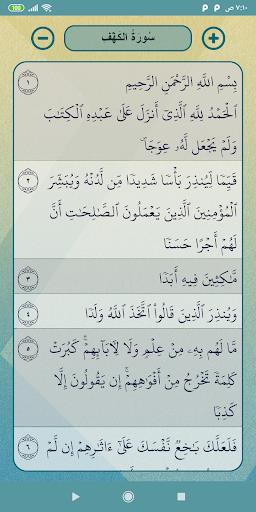 100 ٧:١٠ ص
سُورَةُ الكَهۡف
بِسۡمِ اللَّهِ الرَّحۡمَٰنِ الرَّحِيمِ
١ الۡحَمۡدُ لِلَّهِ الَّذِيٓ أَنزَلَ عَلَىٰ عَبۡدِهِ الۡكِتَٰبَ
وَلَمۡ يَجۡعَل لَّهُۥ عِوَجَاۜ
٢ قَيِّمٗا لِّيُنذِرَ بَأۡسٗا شَدِيدٗا مِّن لَّدُنۡهُ وَيُبَشِّرَ
الۡمُؤۡمِنِينَ الَّذِينَ يَعۡمَلُونَ الصَّٰلِحَٰتِ أَنَّ
لَهُمۡ أَجۡرًا حَسَنٗا
٣ مَّٰكِثِينَ فِيهِ أَبَدٗا
٤ وَيُنذِرَ الَّذِينَ قَالُواْ اتَّخَذَ اللَّهُ وَلَدٗا
٥ مَّا لَهُم بِهِۦ مِنۡ عِلۡمٖ وَلَا لِأٓبَآئِهِمۡۚ كَبُرَتۡ
كَلِمَةٗ تَخۡرُجُ مِنۡ أَفۡوَٰهِهِمۡۚ إِن يَقُولُونَ إِلَّا
كَذِبٗا
٦ فَلَعَلَّكَ بَٰخِعٞ نَّفۡسَكَ عَلَىٰٓ ءَاثَٰرِهِمۡ إِن لَّمۡ